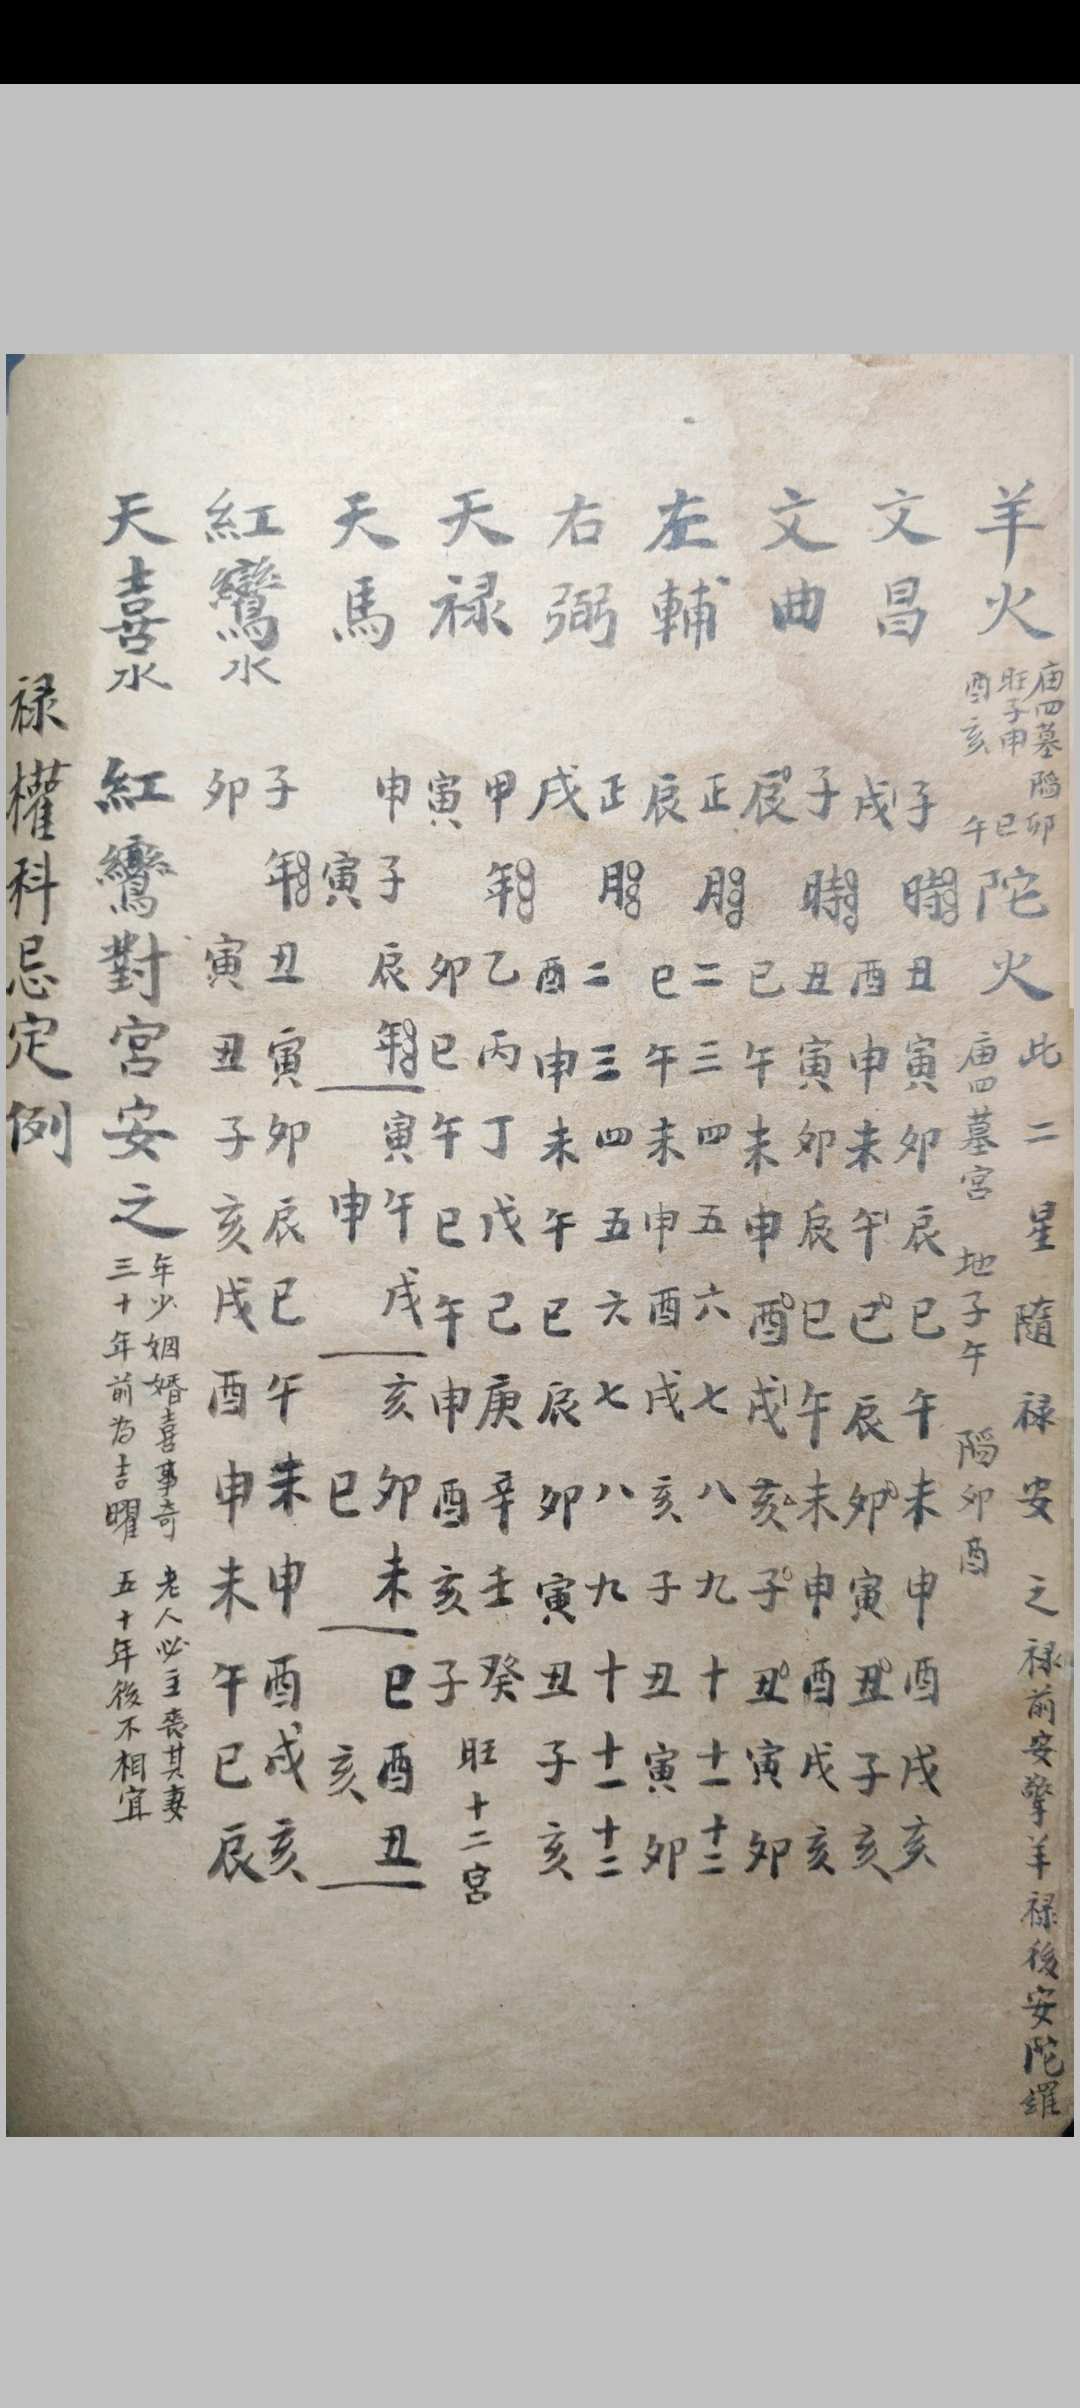 羊火 庙四墓 陷卯 旺子申 巳 酉亥 午 陀火 庙四墓宫 地子午 陷卯酉 此二星隨禄安之禄前安擎羊禄後安陀羅
文昌 子時 丑寅卯辰巳午未申酉戌亥
戌 酉申未午巳辰卯寅丑子亥
文曲 子時 丑寅卯辰巳午未申酉戌亥
辰 巳午未申酉戌亥子丑寅卯
左輔 正月 二三四五六七八九十十一十二
辰 巳午未申酉戌亥子丑寅卯
右弼 正月 二三四五六七八九十十一十二
戌 酉申未午巳辰卯寅丑子亥
天禄 甲年 乙丙丁戊己庚辛壬癸 旺十二宮
寅 卯巳午巳午申酉亥子
天馬 申子辰年 寅午戌 亥卯未 巳酉丑
寅 申 巳 亥
紅鸞水 子年 丑寅卯辰巳午未申酉戌亥
卯 寅丑子亥戌酉申未午巳辰
天喜水 紅鸞對宮安之 年少姻婚喜事奇 老人必主喪其妻
三十年前为吉曜 五十年後不相宜
禄權科忌定例